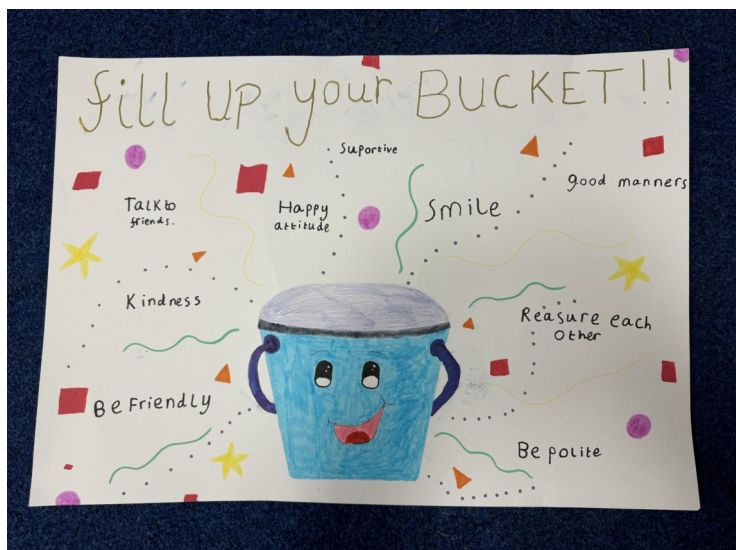 fill up your BUCKET!!
Suportive
good manners
Talk to
friends.
Happy
attitude
Smile
Kindness
Reasure each
Other
Be Friendly
Be polite